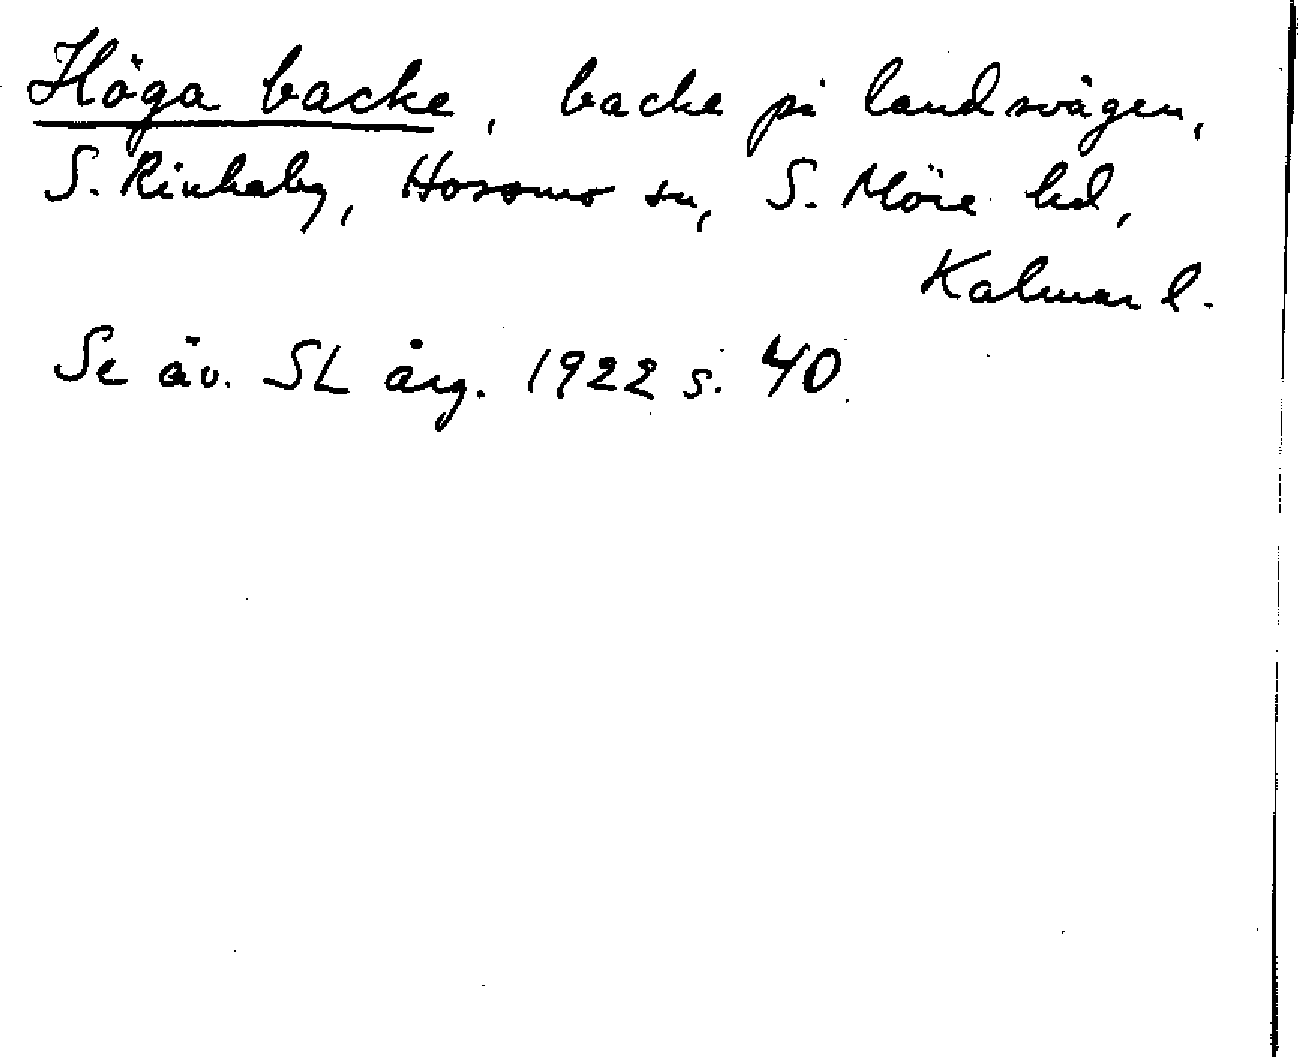 Höga backe, backe på landsvägen,
S. Rinkaby, Hossmo sn, S. Möre hd,
Kalmar l.
Se äv. SL årg. 1922 s. 40.